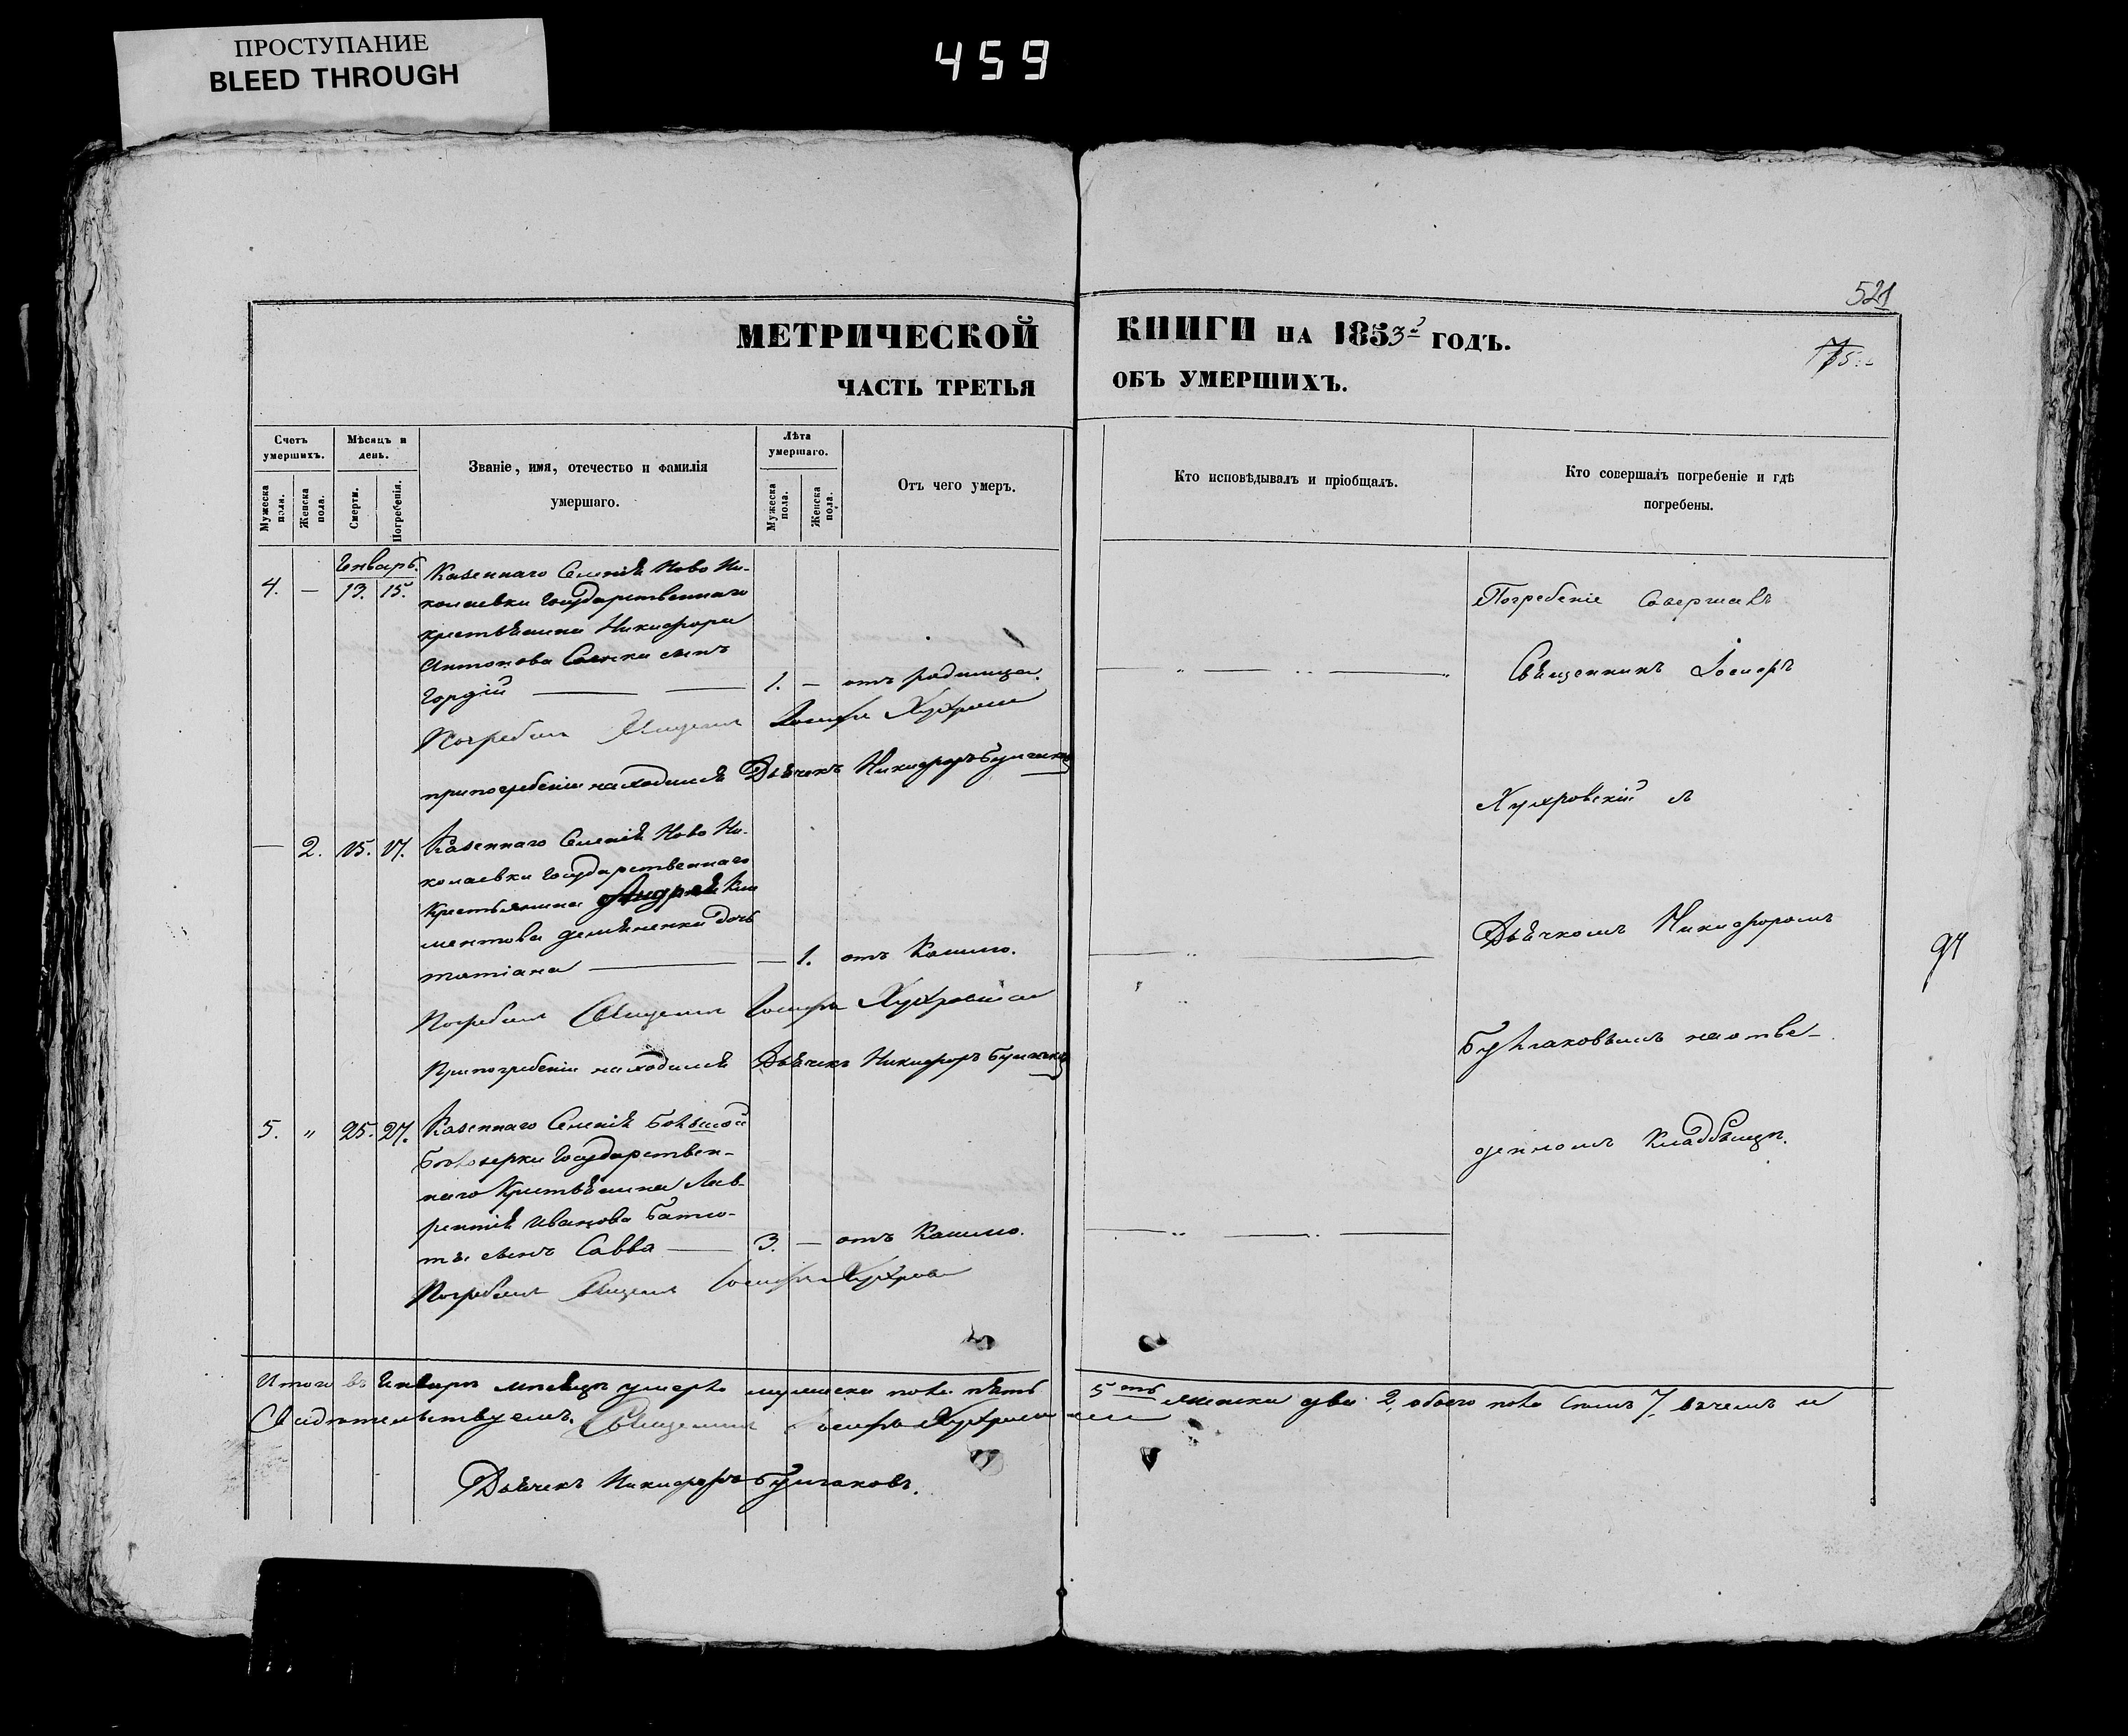 ПРОСТУПАНИЕ
BLEED THROUGH
459
521
МЕТРИЧЕСКОЙ КНИГИ НА 1853 ГОДЪ.
175.
ЧАСТЬ ТРЕТЬЯ ОБЪ УМЕРШИХЪ.
Счетъ умершихъ.
Мужеска пола.
Женска пола.
Мѣсяцъ и день.
Смерти.
Погребенія.
Званіе, имя, отечество и фамилія
умершаго.
Лѣта умершаго.
Мужеска пола.
Женска пола.
Отъ чего умеръ.
Кто исповѣдывалъ и пріобщалъ.
Кто совершалъ погребеніе и гдѣ
погребены.
Январь.
4. — 13. 15. Казеннаго Селенія Ново Ни-
колаевки Государственнаго
крестьянина Никифора
Антонова сынъ
Гордій — — 1. — отъ родимца.
Погребалъ Священникъ Іосифъ
при погребеніи находился Дьячекъ Никифоръ Булгаковъ
— 2. 15. 17. Казеннаго Селенія Ново Ни-
колаевки Государственнаго
Крестьянина Андрея Кли
ментова Демяненка дочь
татіана — — 1. отъ Кашлю.
Погребалъ Священникъ Іосифъ
При погребеніи находился Дьячекъ Никифоръ Булгаковъ
5. „ 25. 27. Казеннаго Селенія Большой
Бѣлозерки Государствен-
наго Крестьянина Лав-
рентія Иванова
сынъ Савва — 3. — отъ Кашлю.
Погребалъ Священникъ Іосифъ
Погребеніе Совершалъ
Священникъ Іосифъ
съ
Дьячкомъ Никифоромъ
Булгаковымъ на отве-
денномъ Кладбищѣ.
97
Итого въ Январѣ мѣсяцѣ умерло мужеска пола пять 5ть женска два 2, обоего пола семь 7. въ чемъ и
Свидѣтельствуемъ. Священникъ Іосифъ
Дьячекъ Никифоръ Булгаковъ.